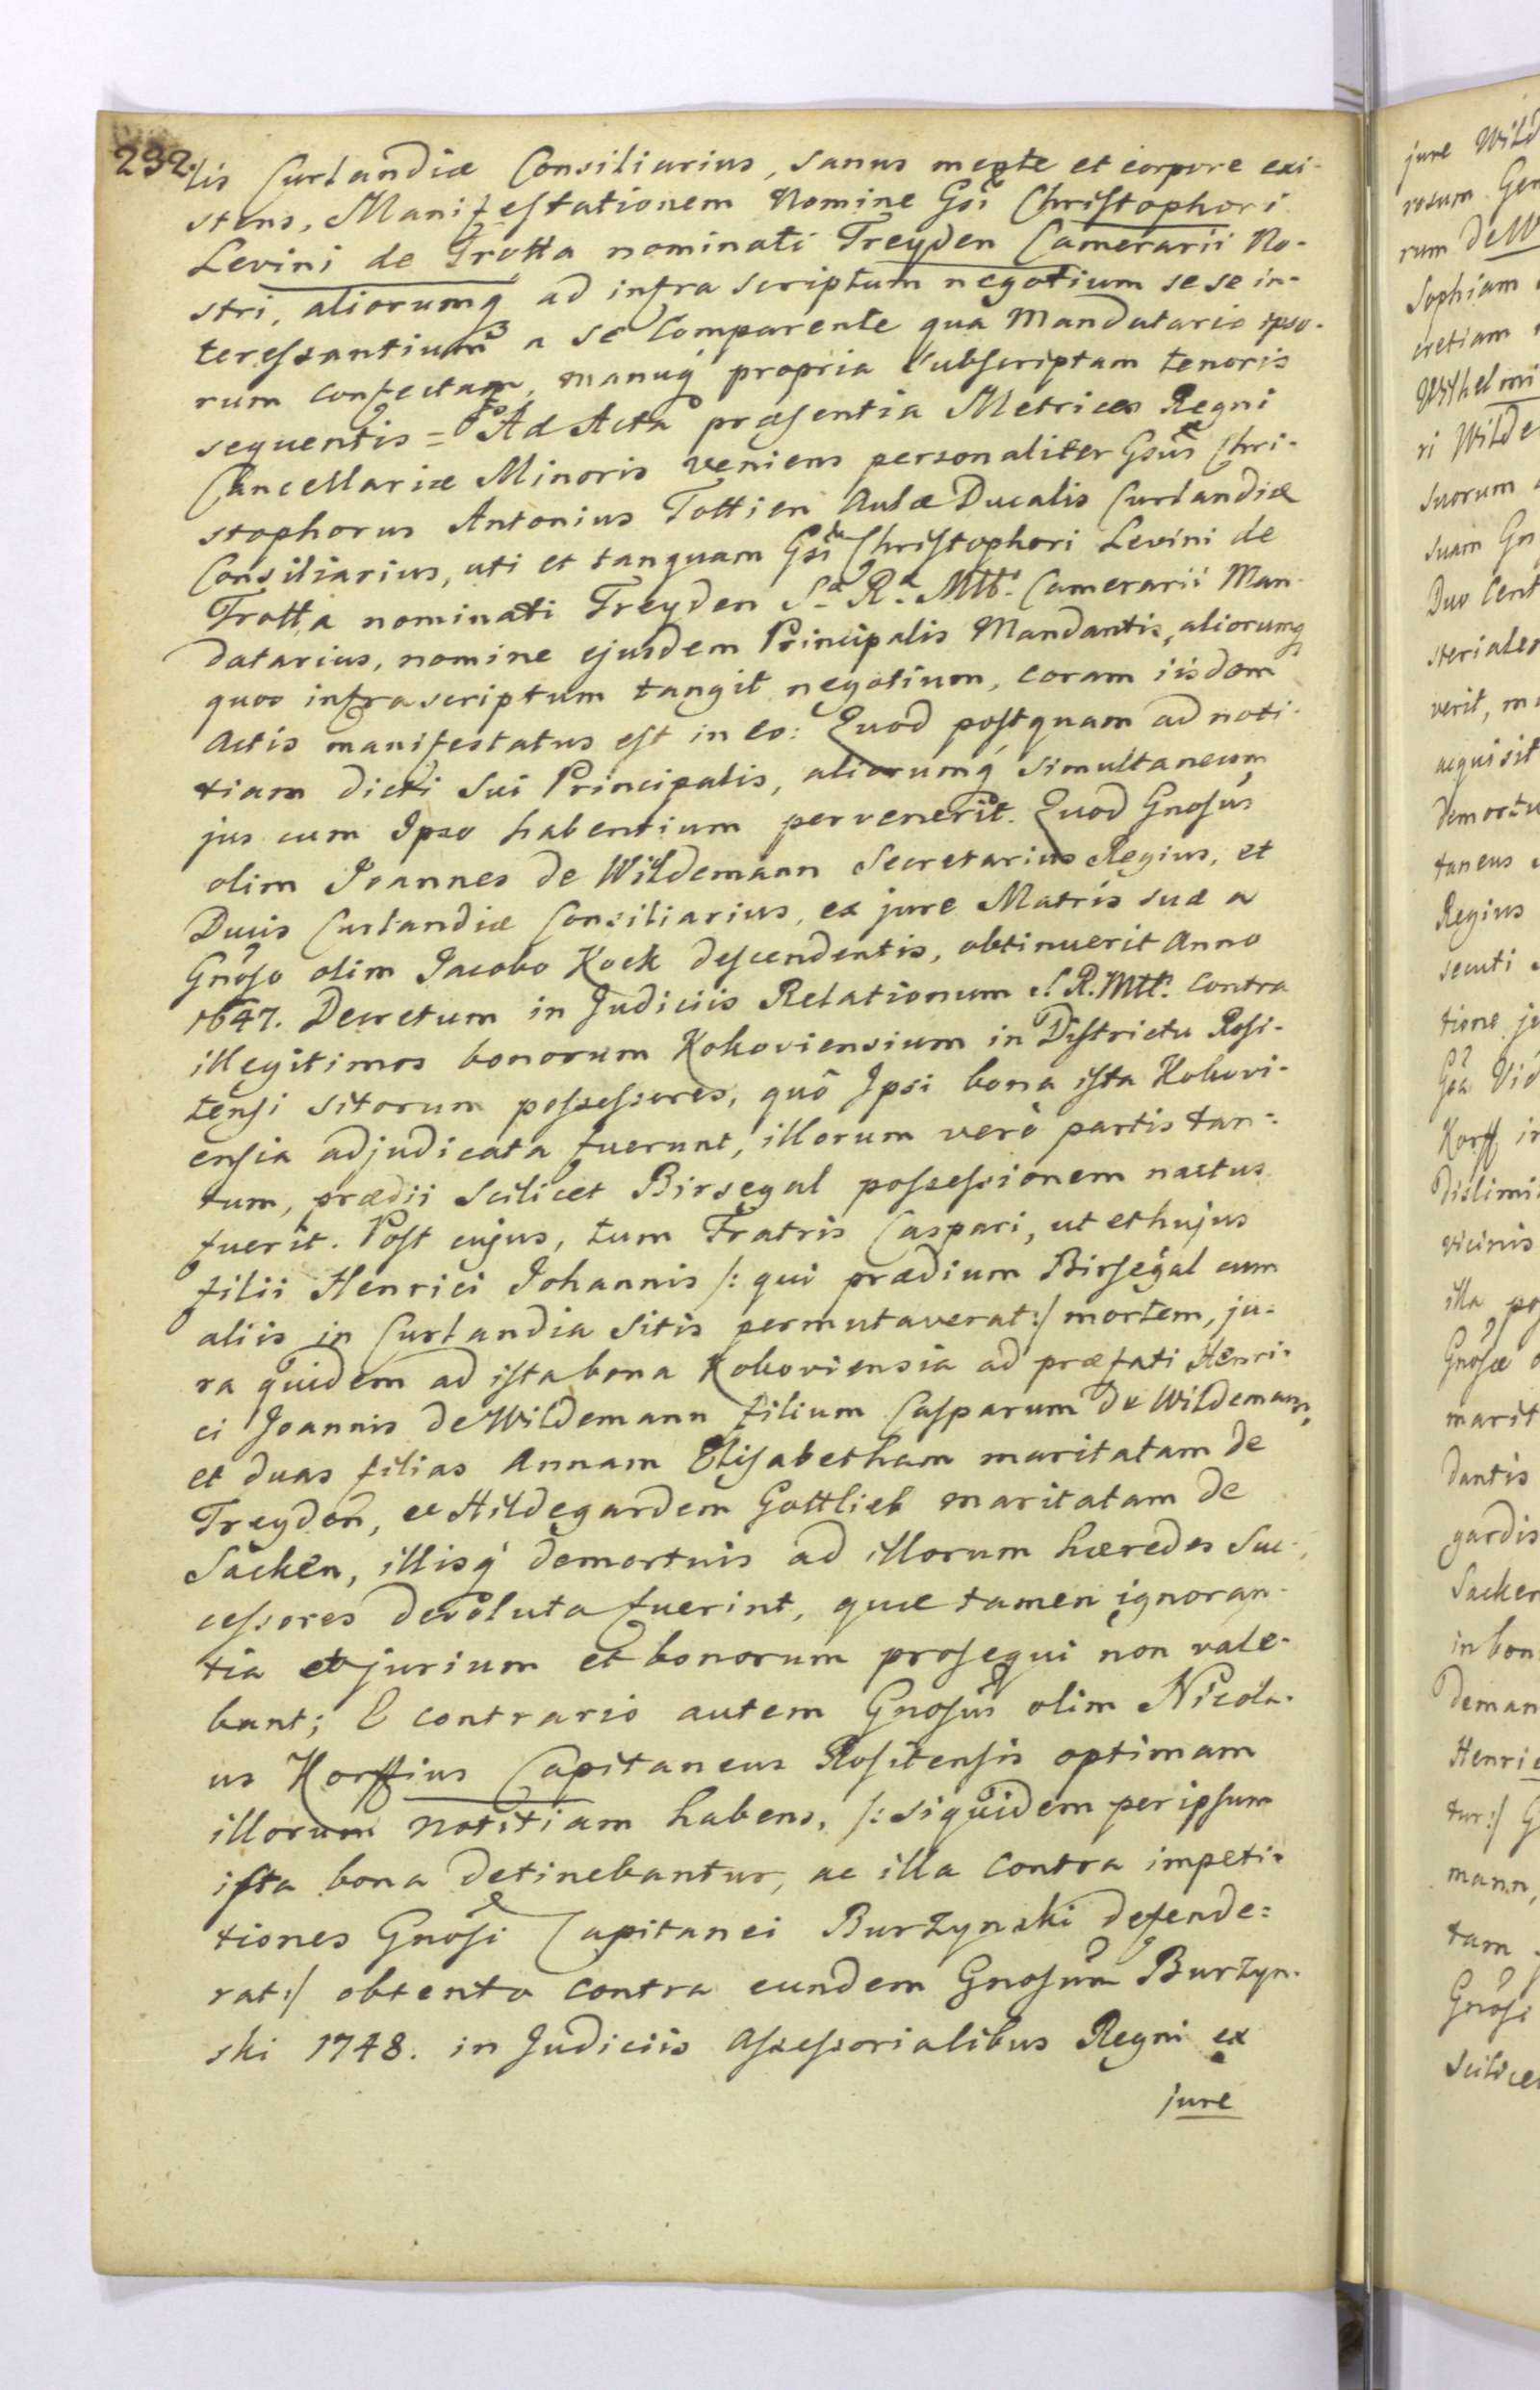 232.
lis Curlandiæ Consiliarius, sanus mente et corpore exi-
stens, Manifestationem Nomine Gsi Christophori
Levini de Trotta nominati Treyden Camerarii No-
stri, aliorumq ad infra scriptum negotium se se in-
teressantium a se Comparente qua Mandatario ipso-
rum confectam, manuq propria subscriptam tenoris
sequentis = Ad Acta præsentia Metrices Regni
Cancellariæ Minoris veniens personaliter Gsus Chri-
stophorus Antonius Tottien Aulæ Ducalis Curlandiæ
Consiliarius, uti et tanquam Gsi Christophori Levini de
Trotta nominati Treyden S. R. Mtt. Camerarii Man-
datarius, nomine ejusdem Principalis Mandantis, aliorumq
quos infrascriptum tangit negotium, coram iisdem
Actis manifestatus est in eo: Quod postquam ad noti-
tiam dicti sui Principalis, aliorumq simultaneum
jus cum Ipso habentium pervenerit. Quod Gnosus
olim Joannes de Wildemann Secretarius Regius, et
Ducis Curlandiæ Consiliarius, ex jure Matris suæ a
Gnoso olim Jacobo Kock descendentis, obtinuerit Anno
1647. Decretum in Judiciis Relationum S. R. Mtt. contra
illegitimos bonorum Kokoviensium in Districtu Rosi-
tensi sitorum possessores, quô Ipsi bona ista Kokovi-
ensia adjudicata fuerunt, illorum verò partis tan-
tum, prædii scilicet Birsegal possessionem nactus
fuerit. Post cujus, tum Fratris Caspari, ut et hujus
filii Henrici Johannis /: qui prædium Birsegal cum
aliis in Curlandia sitis permutaverat :/ mortem, ju-
ra quidem ad ista bona Kokoviensia ad præfati Henri-
ci Joannis de Wildemann filium Casparum de Wildemann,
et duas filias Annam Elisabetham maritatam de
Treyden, et Hildegardem Gottlieb maritatam de
Sacken, illisq demortuis ad illorum hæredes suc-
cessores devoluta fuerint, quæ tamen ignoran-
tia et jurium et bonorum prosequi non vale-
bant; E contrario autem Gnosus olim Nicola-
us Korffius Capitaneus Rositensis optimam
illorum notitiam habens, /: siquidem per ipsum
ista bona detinebantur, ac illa contra impeti-
tiones Gnosi Capitanei Burzynski defende-
rat :/ obtento contra eundem Gnosum Burzyn-
ski 1748. in Judiciis Assessorialibus Regni ex
jure
jure Wild
rosum Gen
rum de W
Sophiam
cretiam
Wilhelmi
ri Wilde
suorum
suam Gn
Duo Cent
steriales
verit, m
acquisit
demortu
taneus
Regius
secuti
tione je
Gsa Vid
Korff in
dislimi
vicinis
illa po
Gnosæ
marit
dantis
gardis
Sacken
in bon
deman
Henric
tur :/ G
mann,
tam
Gnosi
scilicet